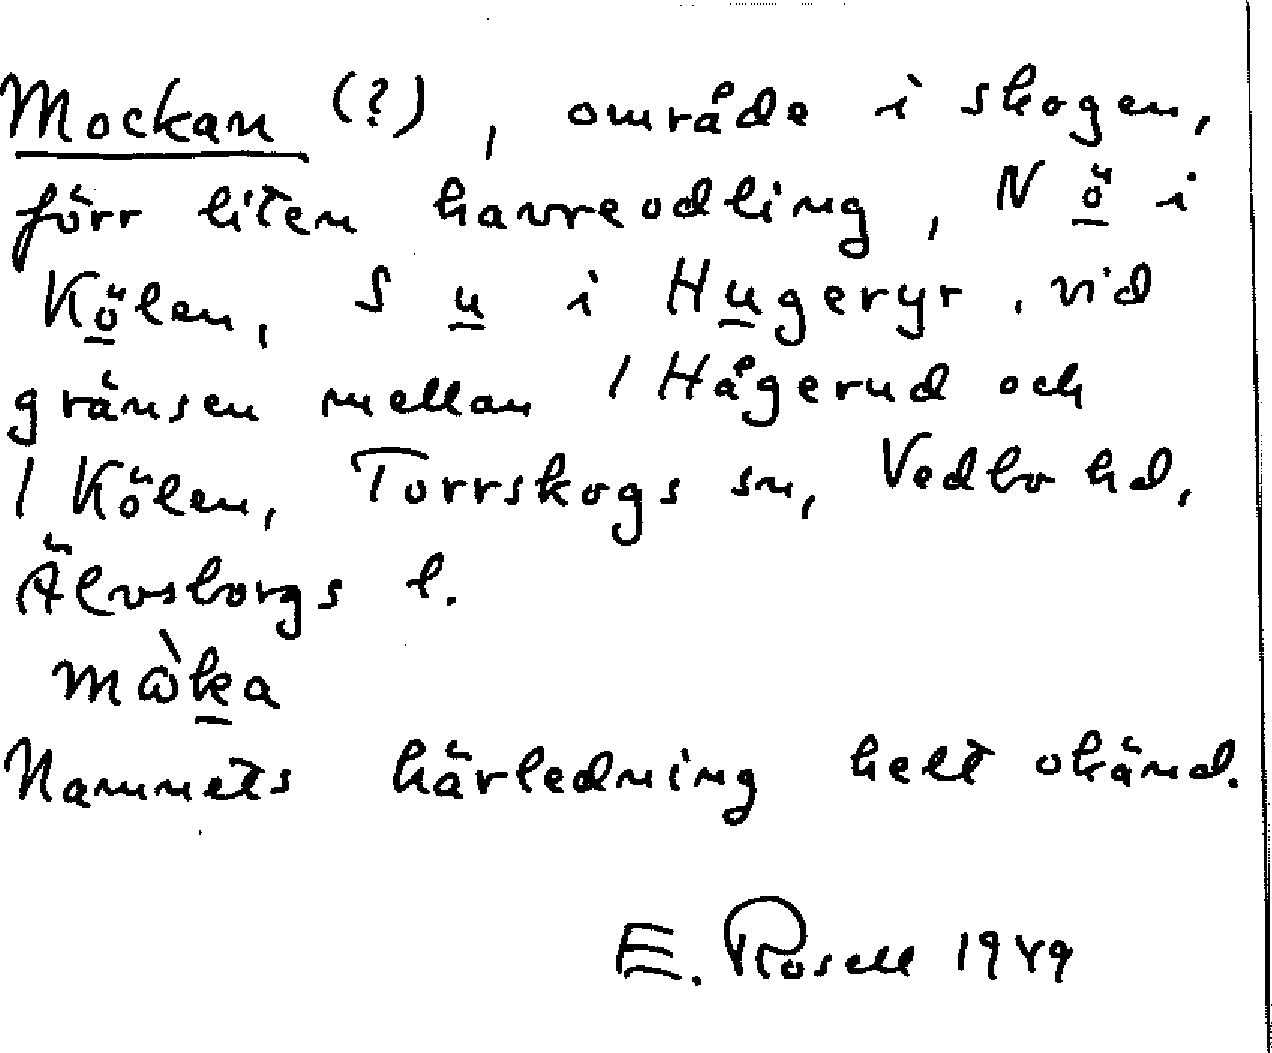 Mockan (?), område i skogen,
förr liten havreodling, N ö i
Kölen, S u i Hugeryr, vid
gränsen mellan / Hågerud och
/ Kölen, Torrskogs sn, Vedbo hd,
Älvsborgs l.
mὼka
Namnets härledning helt okänd.
E. Rosell 1949